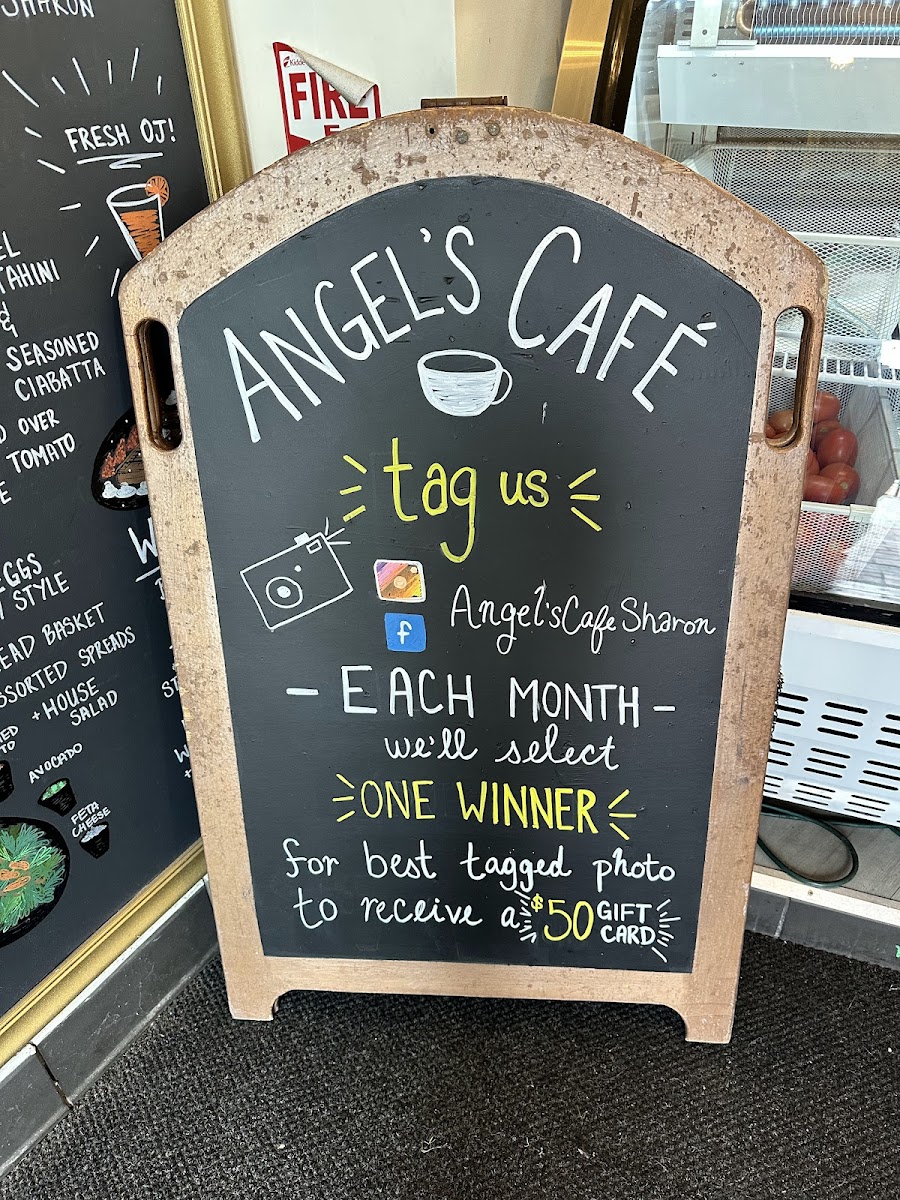 SHARON
FRESH OJ!
TAHINI
&
SEASONED
CIABATTA
OVER
TOMATO
EGGS
STYLE
BASKET
SPREADS
+ HOUSE
SALAD
AVOCADO
FETA
CHEESE
Kidde
FIRE
ANGEL'S CAFÉ
tag us
f
Angel'sCafeSharon
- EACH MONTH -
we'll select
ONE WINNER
for best tagged photo
to receive a $50 GIFT
CARD